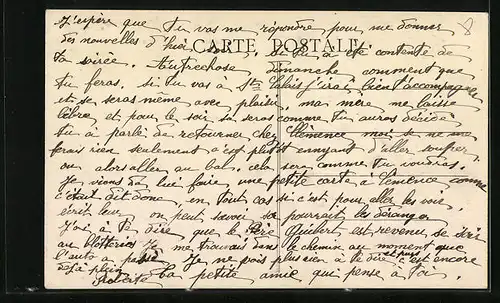 J'espère que tu vas me répondre pour me donner
des nouvelles d'hier soir, si tu a été contente de
CARTE POSTALE
ta soirée. Autrechose dimanche comment que
tu feras. si tu vas à St Palais j'irai bien t'accompagner
et se seras même avec plaisir, ma mère me laisse
libre, et pour le soir sa seras comme tu auras décidé
tu a parlé de retourner chez Clémence moi se ne me
ferais rien seulement c'est plutôt ennuyant d'aller souper
ou alors aller au bal, cela sera comme tu voudras.
Je viens de lui faire une petite carte à Clémence comme
c'était dit donc, en tout cas si c'est pour aller les voir,
écrit leur on peut savoir sa pourrait les déranger
J'ai à te dire, que le Père Guibert est revenu, de
au je me trouvais dans le chemin au moment que
l'auto a passé Je ne vois plus rien à te dire et puis c'est encore
déjà plein
Roberte ta petite amie qui pense à toi.
8